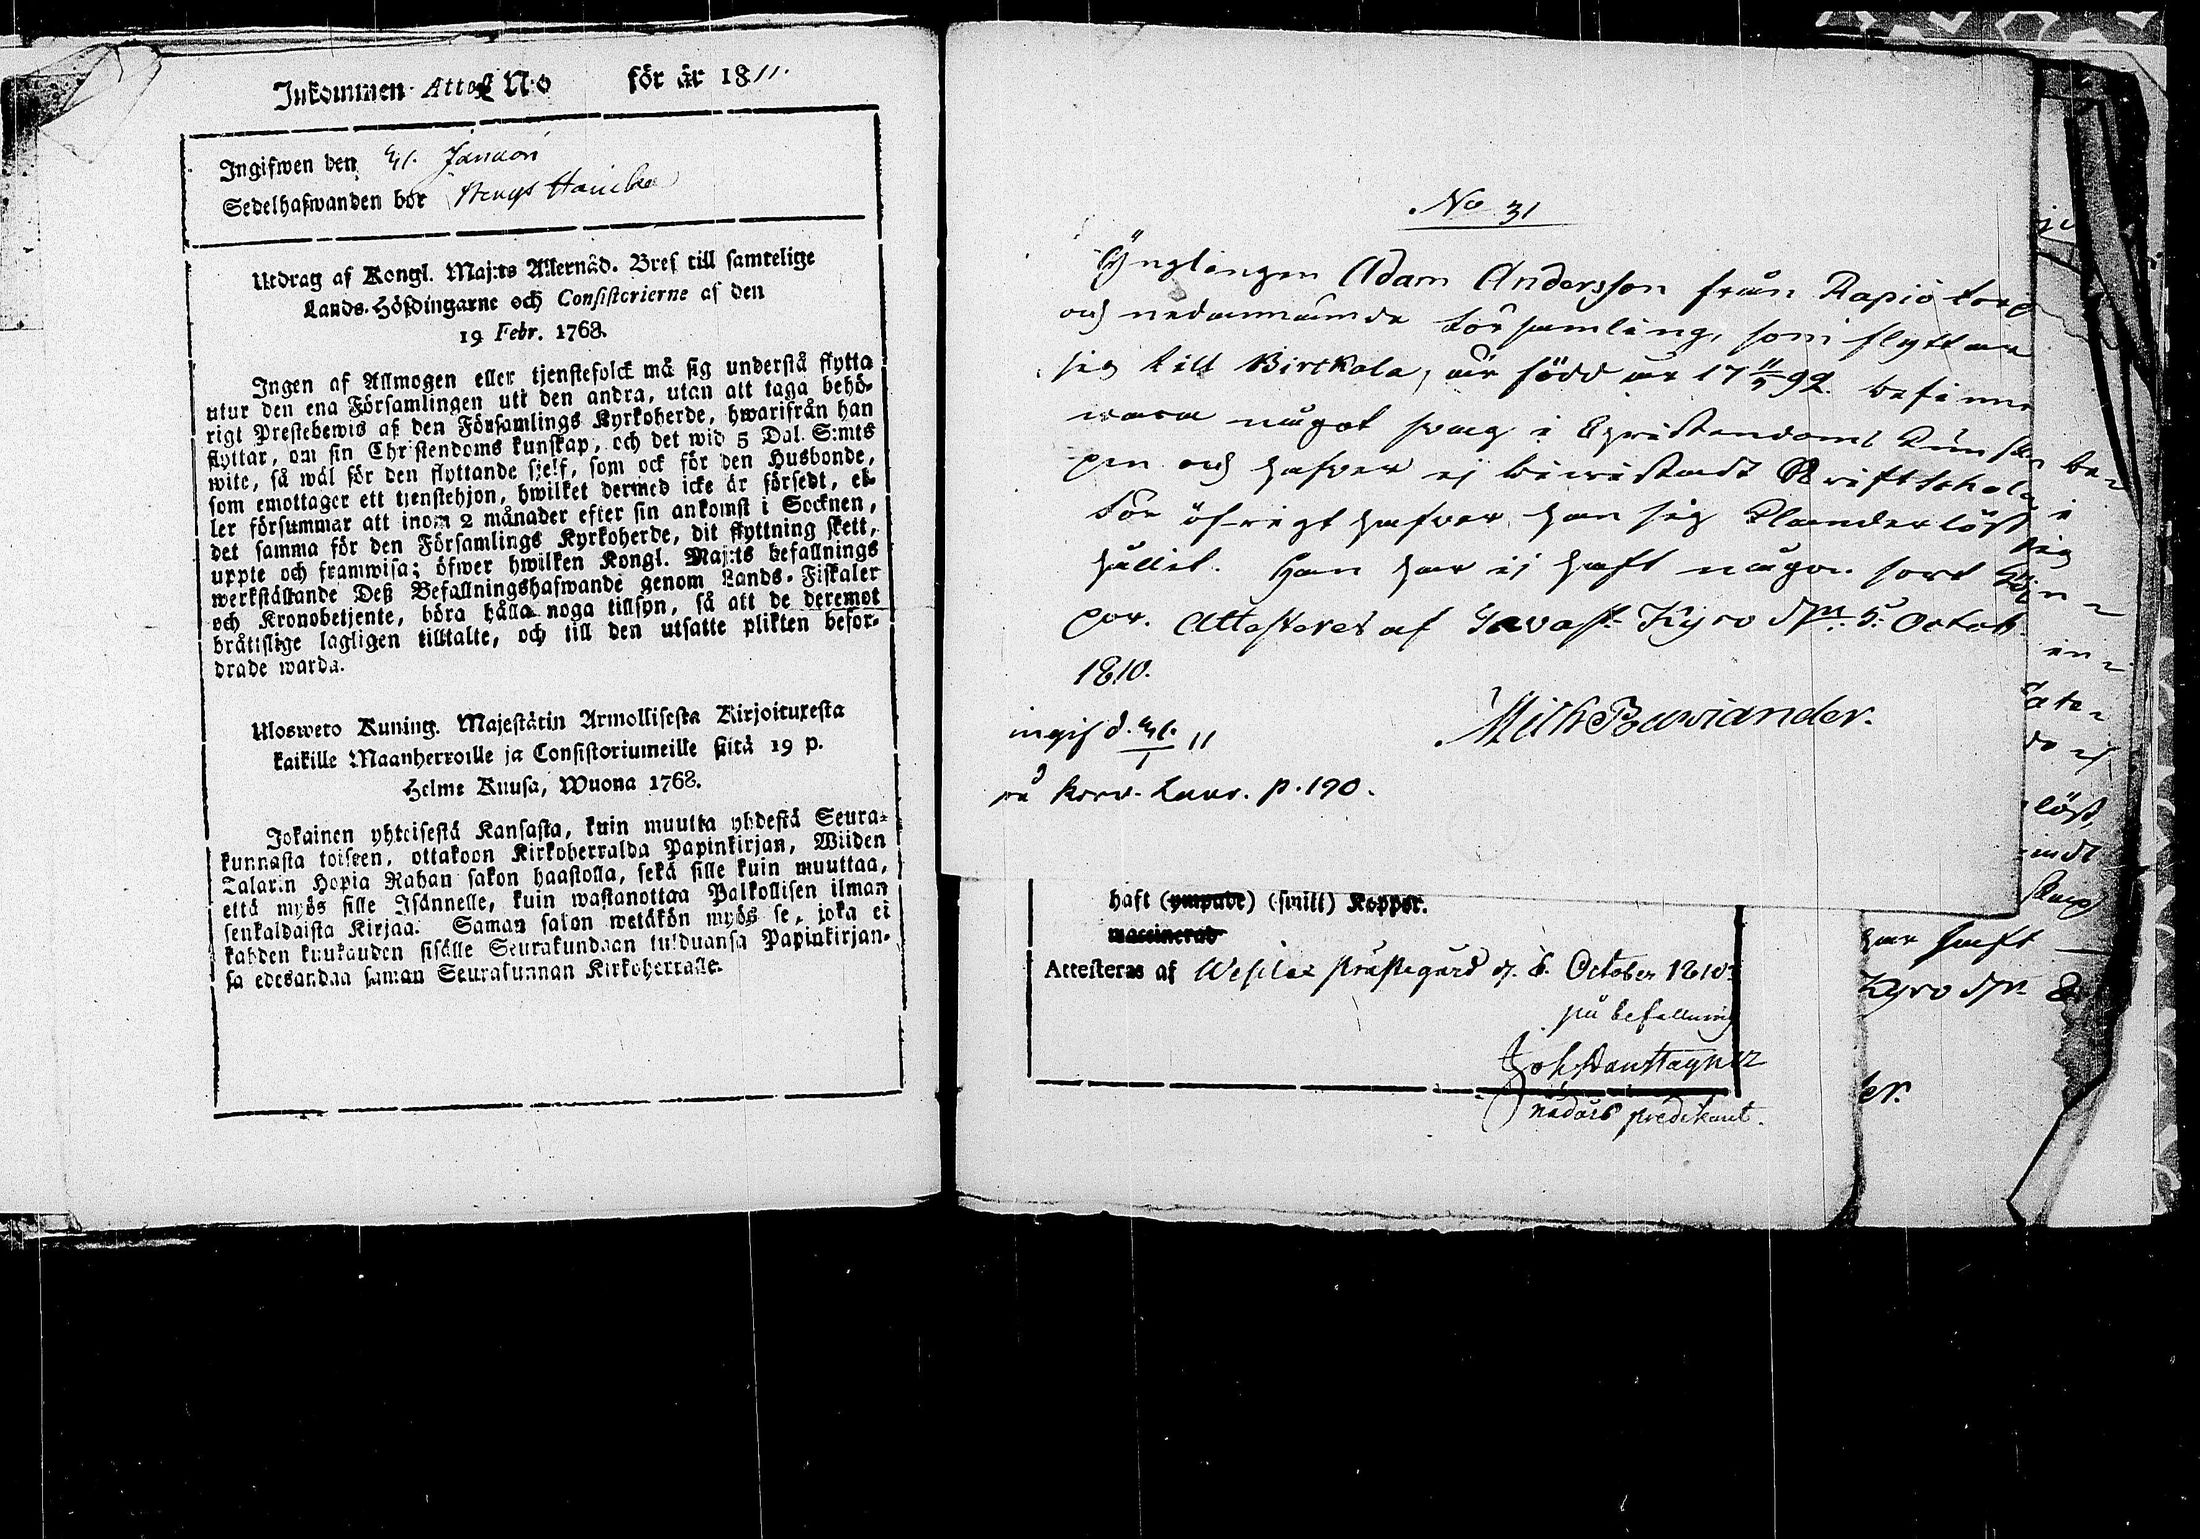 Inkommen Attest N:o för år 1811.
Ingifwen den 21. Januari
Sedelhafwanden bor
Utdrag af Kongl. Maj:ts Allernåd. Bref till samtelige
Lands-Höfdingarne och Consistorierne af den
19 Febr. 1768.
Ingen af Allmogen eller tjenstefolck må sig understå flytta
utur den ena Församlingen uti den andra, utan att taga behö-
rigt Prestebewis af den Församlings Kyrkoherde, hwarifrån han
flyttar, om sin Christendoms kunskap, och det wid 5 Dal. S:mts
wite, så wäl för den flyttande sjelf, som ock för den Husbonde,
som emottager ett tjenstehjon, hwilket dermed icke är försedt, el-
ler försummar att inom 2 månader efter sin ankomst i Socknen,
det samma för den Församlings Kyrkoherde, dit flyttning skett,
uppte och framwisa; öfwer hwilken Kongl. Maj:ts befallnings
werkställande Deß Befallningshafwande genom Lands-Fiskaler
och Kronobetjente, böra hålla noga tillsyn, så att de deremot
bråtislige lagligen tilltalte, och till den utsatte plikten befor-
drade warda.
Ulosweto Kuning. Majestätin Armollisesta Kirjoituxesta
kaikille Maanherroille ja Consistoriumeille siitä 19 p.
Helme Kuusa, Wuona 1768.
Jokainen yhteisestä Kansasta, kuin muutta yhdestä Seura-
kunnasta toiseen, ottakoon Kirkoherralda Papinkirjan, Wiiden
Talarin Hopia Rahan sakon haastolla, sekä sille kuin muuttaa,
että myös sille Isännelle, kuin wastanottaa Palkollisen ilman
senkaldaista Kirjaa. Saman salon wetäkön myös se, joka ei
kahden kuukauden sisälle Seurakundaan tulduansa Papinkirjan-
sa edesandaa saman Seurakunnan Kirkoherralle.
No 31
Ynglingen Adam Andersson från Rapio torp
och nedannämnde församling, som flyttar
sig till Birckala, är född år 17 11/9 92. befinnes
wara något swag i Christendoms Kunska
pen och hafver ej biwistadt Skriftschola
för öfrigt hafver han sig Klanderlöst
hållit. Han har ej haft någon sort Kop
por. Attesteres af Tavast-Kyro d. 5. Octob.
1810.
Mich Bawiander.
ingif d. 21/1 11
på Korv. Laur. p. 190.
haft (ympade) (smitt) Koppor.
waccinerad
Attesteras af Wesilax prästegård d. 6. October 1810.
på befallning
nådårs predikant.
be-
i
sig
in-
löst,
har haft
Kyro d.
er.